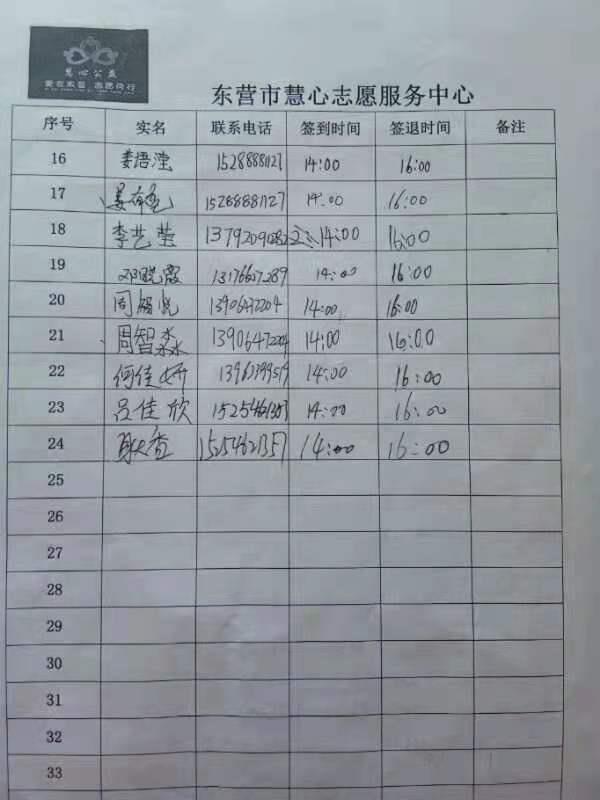 慧心公益
爱在东营 志愿同行
东营市慧心志愿服务中心
序号 实名 联系电话 签到时间 签退时间 备注
16 姜语滢 15288881127 14:00 16:00
17 姜 15288881127 14:00 16:00
18 李艺莹 14:00 16:00
19 邓晓霞 13176607289 14:00 16:00
20 周智 13906472204 14:00 16:00
21 周智淼 13906472204 14:00 16:00
22 何佳妍 14:00 16:00
23 吕佳欣 14:00 16:00
24 15254621357 14:00 16:00
25
26
27
28
29
30
31
32
33